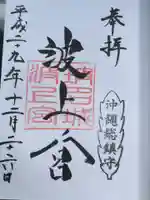 奉拝
沖縄総鎮守
波上宮
平成二十九年十二月二十六日